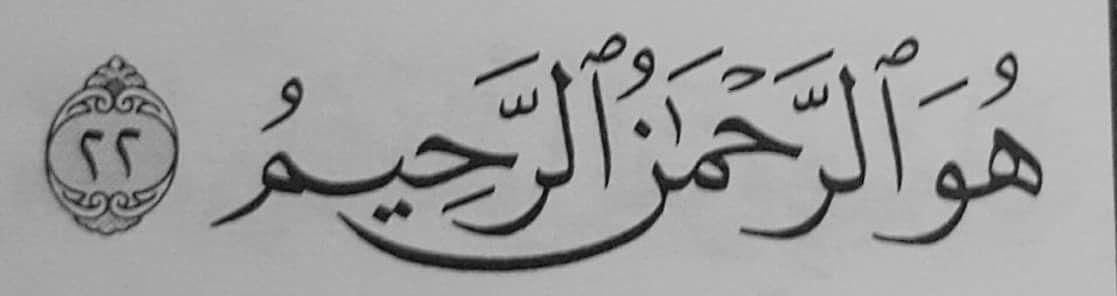 هُوَ ٱلرَّحْمَٰنُ ٱلرَّحِيمُ ٢٢